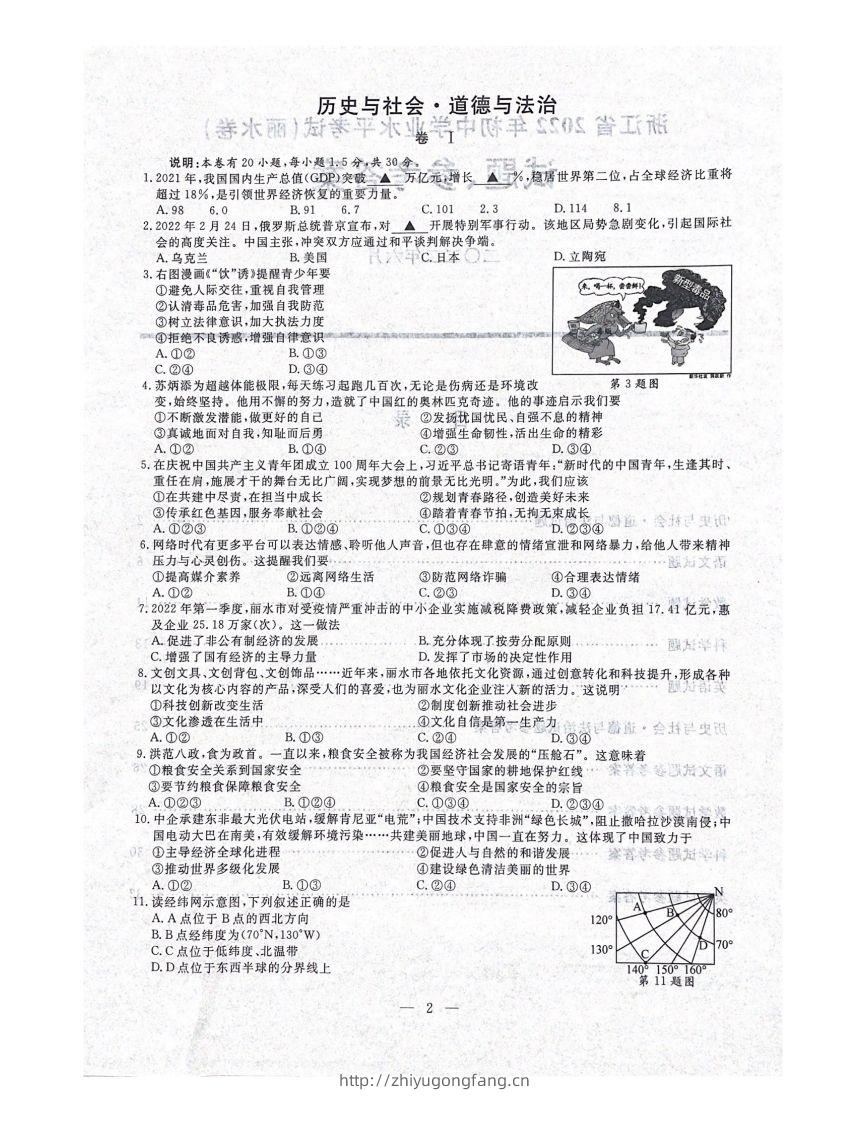 历史与社会·道德与法治
卷 I
说明:本卷有20小题,每小题1.5分,共30分。
1.2021年,我国国内生产总值(GDP)突破 ▲ 万亿元,增长 ▲ %,稳居世界第二位,占全球经济比重将
超过18%,是引领世界经济恢复的重要力量。
A.98 6.0 B.91 6.7 C.101 2.3 D.114 8.1
2.2022年2月24日,俄罗斯总统普京宣布,对 ▲ 开展特别军事行动。该地区局势急剧变化,引起国际社
会的高度关注。中国主张,冲突双方应通过和平谈判解决争端。
A.乌克兰 B.美国 C.日本 D.立陶宛
3.右图漫画《“饮”诱》提醒青少年要
①避免人际交往,重视自我管理
②认清毒品危害,加强自我防范
③树立法律意识,加大执法力度
④拒绝不良诱惑,增强自律意识
A.①② B.①③
C.②④ D.③④
来,喝一杯,尝尝鲜!
新型毒品
第3题图
4.苏炳添为超越体能极限,每天练习起跑几百次,无论是伤病还是环境改
变,始终坚持。他用不懈的努力,造就了中国红的奥林匹克奇迹。他的事迹启示我们要
①不断激发潜能,做更好的自己 ②发扬忧国忧民、自强不息的精神
③真诚地面对自我,知耻而后勇 ④增强生命韧性,活出生命的精彩
A.①② B.①④ C.②③ D.③④
5.在庆祝中国共产主义青年团成立100周年大会上,习近平总书记寄语青年:“新时代的中国青年,生逢其时、
重任在肩,施展才干的舞台无比广阔,实现梦想的前景无比光明。”为此,我们应该
①在共建中尽责,在担当中成长 ②规划青春路径,创造美好未来
③传承红色基因,服务奉献社会 ④踏着青春节拍,无拘无束成长
A.①②③ B.①②④ C.①③④ D.②③④
6.网络时代有更多平台可以表达情感、聆听他人声音,但也存在肆意的情绪宣泄和网络暴力,给他人带来精神
压力与心灵创伤。这提醒我们要
①提高媒介素养 ②远离网络生活 ③防范网络诈骗 ④合理表达情绪
A.①② B.①④ C.②③ D.③④
7.2022年第一季度,丽水市对受疫情严重冲击的中小企业实施减税降费政策,减轻企业负担17.41亿元,惠
及企业25.18万家(次)。这一做法
A.促进了非公有制经济的发展 B.充分体现了按劳分配原则
C.增强了国有经济的主导力量 D.发挥了市场的决定性作用
8.文创文具、文创背包、文创饰品……近年来,丽水市各地依托文化资源,通过创意转化和科技提升,形成各种
以文化为核心内容的产品,深受人们的喜爱,也为丽水文化企业注入新的活力。这说明
①科技创新改变生活 ②制度创新推动社会进步
③文化渗透在生活中 ④文化自信是第一生产力
A.①② B.①③ C.②④ D.③④
9.洪范八政,食为政首。一直以来,粮食安全被称为我国经济社会发展的“压舱石”。这意味着
①粮食安全关系到国家安全 ②要坚守国家的耕地保护红线
③要节约粮食保障粮食安全 ④粮食安全是国家安全的宗旨
A.①②③ B.①②④ C.①③④ D.②③④
10.中企承建东非最大光伏电站,缓解肯尼亚“电荒”;中国技术支持非洲“绿色长城”,阻止撒哈拉沙漠南侵;中
国电动大巴在南美,有效缓解环境污染……共建美丽地球,中国一直在努力。这体现了中国致力于
①主导经济全球化进程 ②促进人与自然的和谐发展
③推动世界多级化发展 ④建设绿色清洁美丽的世界
A.①② B.①③ C.②④ D.③④
11.读经纬网示意图,下列叙述正确的是
A.A点位于B点的西北方向
B.B点经纬度为(70°N,130°W)
C.C点位于低纬度、北温带
D.D点位于东西半球的分界线上
N
A
B
80°
120°
D
70°
130°
C
140° 150° 160°
第11题图
— 2 —
http://zhiyugongfang.cn